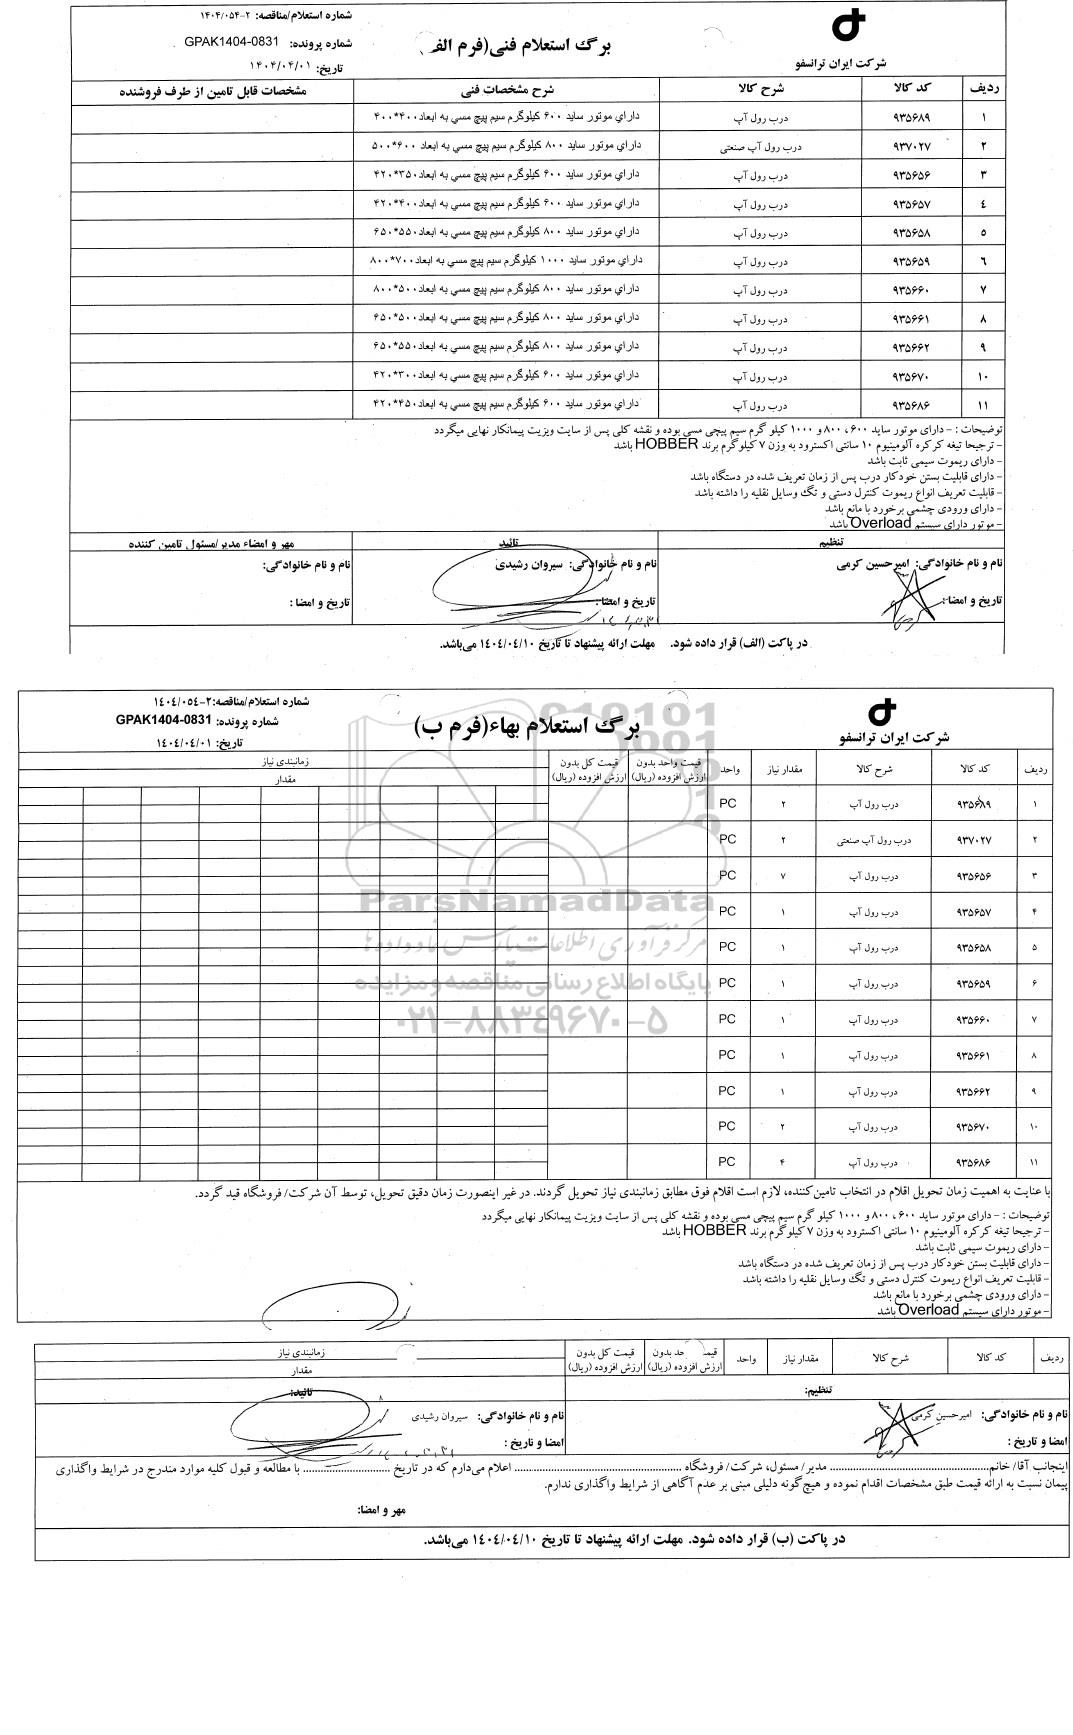 شماره استعلام/مناقصه: ۲-۱۴۰۴/۰۵۴
برگ استعلام فنی(فرم الف
شماره پرونده: GPAK1404-0831
شرکت ایران ترانسفو
تاریخ: ۱۴۰۴/۰۴/۰۱
ردیف کد کالا شرح کالا شرح مشخصات فنی مشخصات قابل تامین از طرف فروشنده
۱ ۹۳۵۶۸۹ درب رول آپ داراي موتور سايد ۶۰۰ کيلوگرم سيم پيچ مسي به ابعاد۴۰۰*۴۰۰
۲ ۹۳۷۰۲۷ درب رول آپ صنعتی داراي موتور سايد ۸۰۰ کيلوگرم سيم پيچ مسي به ابعاد ۶۰۰*۵۰۰
۳ ۹۳۵۶۵۶ درب رول آپ داراي موتور سايد ۶۰۰ کيلوگرم سيم پيچ مسي به ابعاد۳۵۰*۴۲۰
۴ ۹۳۵۶۵۷ درب رول آپ داراي موتور سايد ۶۰۰ کيلوگرم سيم پيچ مسي به ابعاد۴۰۰*۴۲۰
۵ ۹۳۵۶۵۸ درب رول آپ داراي موتور سايد ۸۰۰ کيلوگرم سيم پيچ مسي به ابعاد۵۵۰*۶۵۰
۶ ۹۳۵۶۵۹ درب رول آپ داراي موتور سايد ۱۰۰۰ کيلوگرم سيم پيچ مسي به ابعاد۷۰۰*۸۰۰
۷ ۹۳۵۶۶۰ درب رول آپ داراي موتور سايد ۸۰۰ کيلوگرم سيم پيچ مسي به ابعاد۵۰۰*۸۰۰
۸ ۹۳۵۶۶۱ درب رول آپ داراي موتور سايد ۸۰۰ کيلوگرم سيم پيچ مسي به ابعاد۵۰۰*۶۵۰
۹ ۹۳۵۶۶۲ درب رول آپ داراي موتور سايد ۸۰۰ کيلوگرم سيم پيچ مسي به ابعاد۵۵۰*۶۵۰
۱۰ ۹۳۵۶۷۰ درب رول آپ داراي موتور سايد ۶۰۰ کيلوگرم سيم پيچ مسي به ابعاد۳۰۰*۴۲۰
۱۱ ۹۳۵۶۸۶ درب رول آپ داراي موتور سايد ۶۰۰ کيلوگرم سيم پيچ مسي به ابعاد۴۵۰*۴۲۰
توضیحات : - دارای موتور ساید ۶۰۰ ، ۸۰۰ و ۱۰۰۰ کیلو گرم سیم پیچی مسی بوده و نقشه کلی پس از سایت ویزیت پیمانکار نهایی میگردد
- ترجیحا تیغه کرکره آلومینیوم ۱۰ سانتی اکسترود به وزن ۷ کیلوگرم برند HOBBER باشد
- دارای ریموت سیمی ثابت باشد
- دارای قابلیت بستن خودکار درب پس از زمان تعریف شده در دستگاه باشد
- قابلیت تعریف انواع ریموت کنترل دستی و تگ وسایل نقلیه را داشته باشد
- دارای ورودی چشمی برخورد با مانع باشد
- موتور دارای سیستم Overload باشد
تنظیم تائید مهر و امضاء مدیر/مسئول تامین کننده
نام و نام خانوادگی: امیرحسین کرمی نام و نام خانوادگی: سیروان رشیدی نام و نام خانوادگی:
تاریخ و امضا : تاریخ و امضا : تاریخ و امضا :
در پاکت (الف) قرار داده شود. مهلت ارائه پیشنهاد تا تاریخ ۱۴۰۴/۰۴/۱۰ می‌باشد.
شماره استعلام/مناقصه:۲-۱۴۰۴/۰۵۴
برگ استعلام بهاء(فرم ب)
شماره پرونده: GPAK1404-0831
شرکت ایران ترانسفو
تاریخ: ۱۴۰۴/۰۴/۰۱
ردیف کد کالا شرح کالا مقدار نیاز واحد قیمت واحد بدون ارزش افزوده (ریال) قیمت کل بدون ارزش افزوده (ریال) زمانبندی نیاز
مقدار
۱ ۹۳۵۶۸۹ درب رول آپ ۲ PC
۲ ۹۳۷۰۲۷ درب رول آپ صنعتی ۲ PC
۳ ۹۳۵۶۵۶ درب رول آپ ۷ PC
۴ ۹۳۵۶۵۷ درب رول آپ ۱ PC
۵ ۹۳۵۶۵۸ درب رول آپ ۱ PC
۶ ۹۳۵۶۵۹ درب رول آپ ۱ PC
۷ ۹۳۵۶۶۰ درب رول آپ ۱ PC
۸ ۹۳۵۶۶۱ درب رول آپ ۱ PC
۹ ۹۳۵۶۶۲ درب رول آپ ۱ PC
۱۰ ۹۳۵۶۷۰ درب رول آپ ۲ PC
۱۱ ۹۳۵۶۸۶ درب رول آپ ۴ PC
ParsNamadData
مرکز فرآوری اطلاعات پارس نماد داده ها
پایگاه اطلاع رسانی مناقصه و مزایده
۰۲۱-۸۸۳۴۹۶۷۰-۵
با عنایت به اهمیت زمان تحویل اقلام در انتخاب تامین‌کننده، لازم است اقلام فوق مطابق زمانبندی نیاز تحویل گردند. در غیر اینصورت زمان دقیق تحویل، توسط آن شرکت/ فروشگاه قید گردد.
توضیحات : - دارای موتور ساید ۶۰۰ ، ۸۰۰ و ۱۰۰۰ کیلو گرم سیم پیچی مسی بوده و نقشه کلی پس از سایت ویزیت پیمانکار نهایی میگردد
- ترجیحا تیغه کرکره آلومینیوم ۱۰ سانتی اکسترود به وزن ۷ کیلوگرم برند HOBBER باشد
- دارای ریموت سیمی ثابت باشد
- دارای قابلیت بستن خودکار درب پس از زمان تعریف شده در دستگاه باشد
- قابلیت تعریف انواع ریموت کنترل دستی و تگ وسایل نقلیه را داشته باشد
- دارای ورودی چشمی برخورد با مانع باشد
- موتور دارای سیستم Overload باشد
ردیف کد کالا شرح کالا مقدار نیاز واحد بدون ارزش افزوده (ریال) قیمت کل بدون ارزش افزوده (ریال) زمانبندی نیاز
مقدار
تنظیم: تائید:
نام و نام خانوادگی: امیرحسین کرمی نام و نام خانوادگی: سیروان رشیدی
امضا و تاریخ : امضا و تاریخ :
اینجانب آقا/ خانم.................... مدیر/ مسئول، شرکت/ فروشگاه .................... اعلام می‌دارم که در تاریخ .................... با مطالعه و قبول کلیه موارد مندرج در شرایط واگذاری
پیمان نسبت به ارائه قیمت طبق مشخصات اقدام نموده و هیچ‌گونه دلیلی مبنی بر عدم آگاهی از شرایط واگذاری ندارم.
مهر و امضا:
در پاکت (ب) قرار داده شود. مهلت ارائه پیشنهاد تا تاریخ ۱۴۰۴/۰۴/۱۰ می‌باشد.